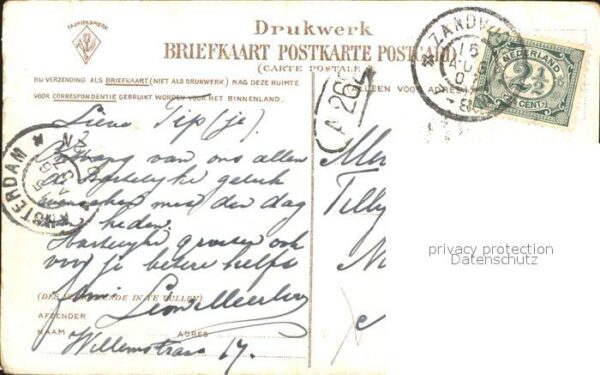 FABRIEKSMERK
Drukwerk
BRIEFKAART POSTKARTE POSTCARD
(CARTE POSTALE)
BIJ VERZENDING ALS BRIEFKAART (NIET ALS DRUKWERK) MAG DEZE RUIMTE
VOOR CORRESPONDENTIE GEBRUIKT WORDEN VOOR HET BINNENLAND.
(ALLEEN VOOR ADRES)
ZANDV
AUG
NEDERLAND
2½
CENT
A 262
AMSTERDAM
Lieve Tip(je)
Ontvang van ons allen
de Hartelijke geluk
wenschen met den dag
van heden.
Hartelijke groeten ook
voor je betere helft
(DES VERKIEZENDE IN TE VULLEN)
fam. Leon Meerloo
AFZENDER
NAAM ADRES
Willemstraat 17.
Tilly
privacy protection
Datenschutz